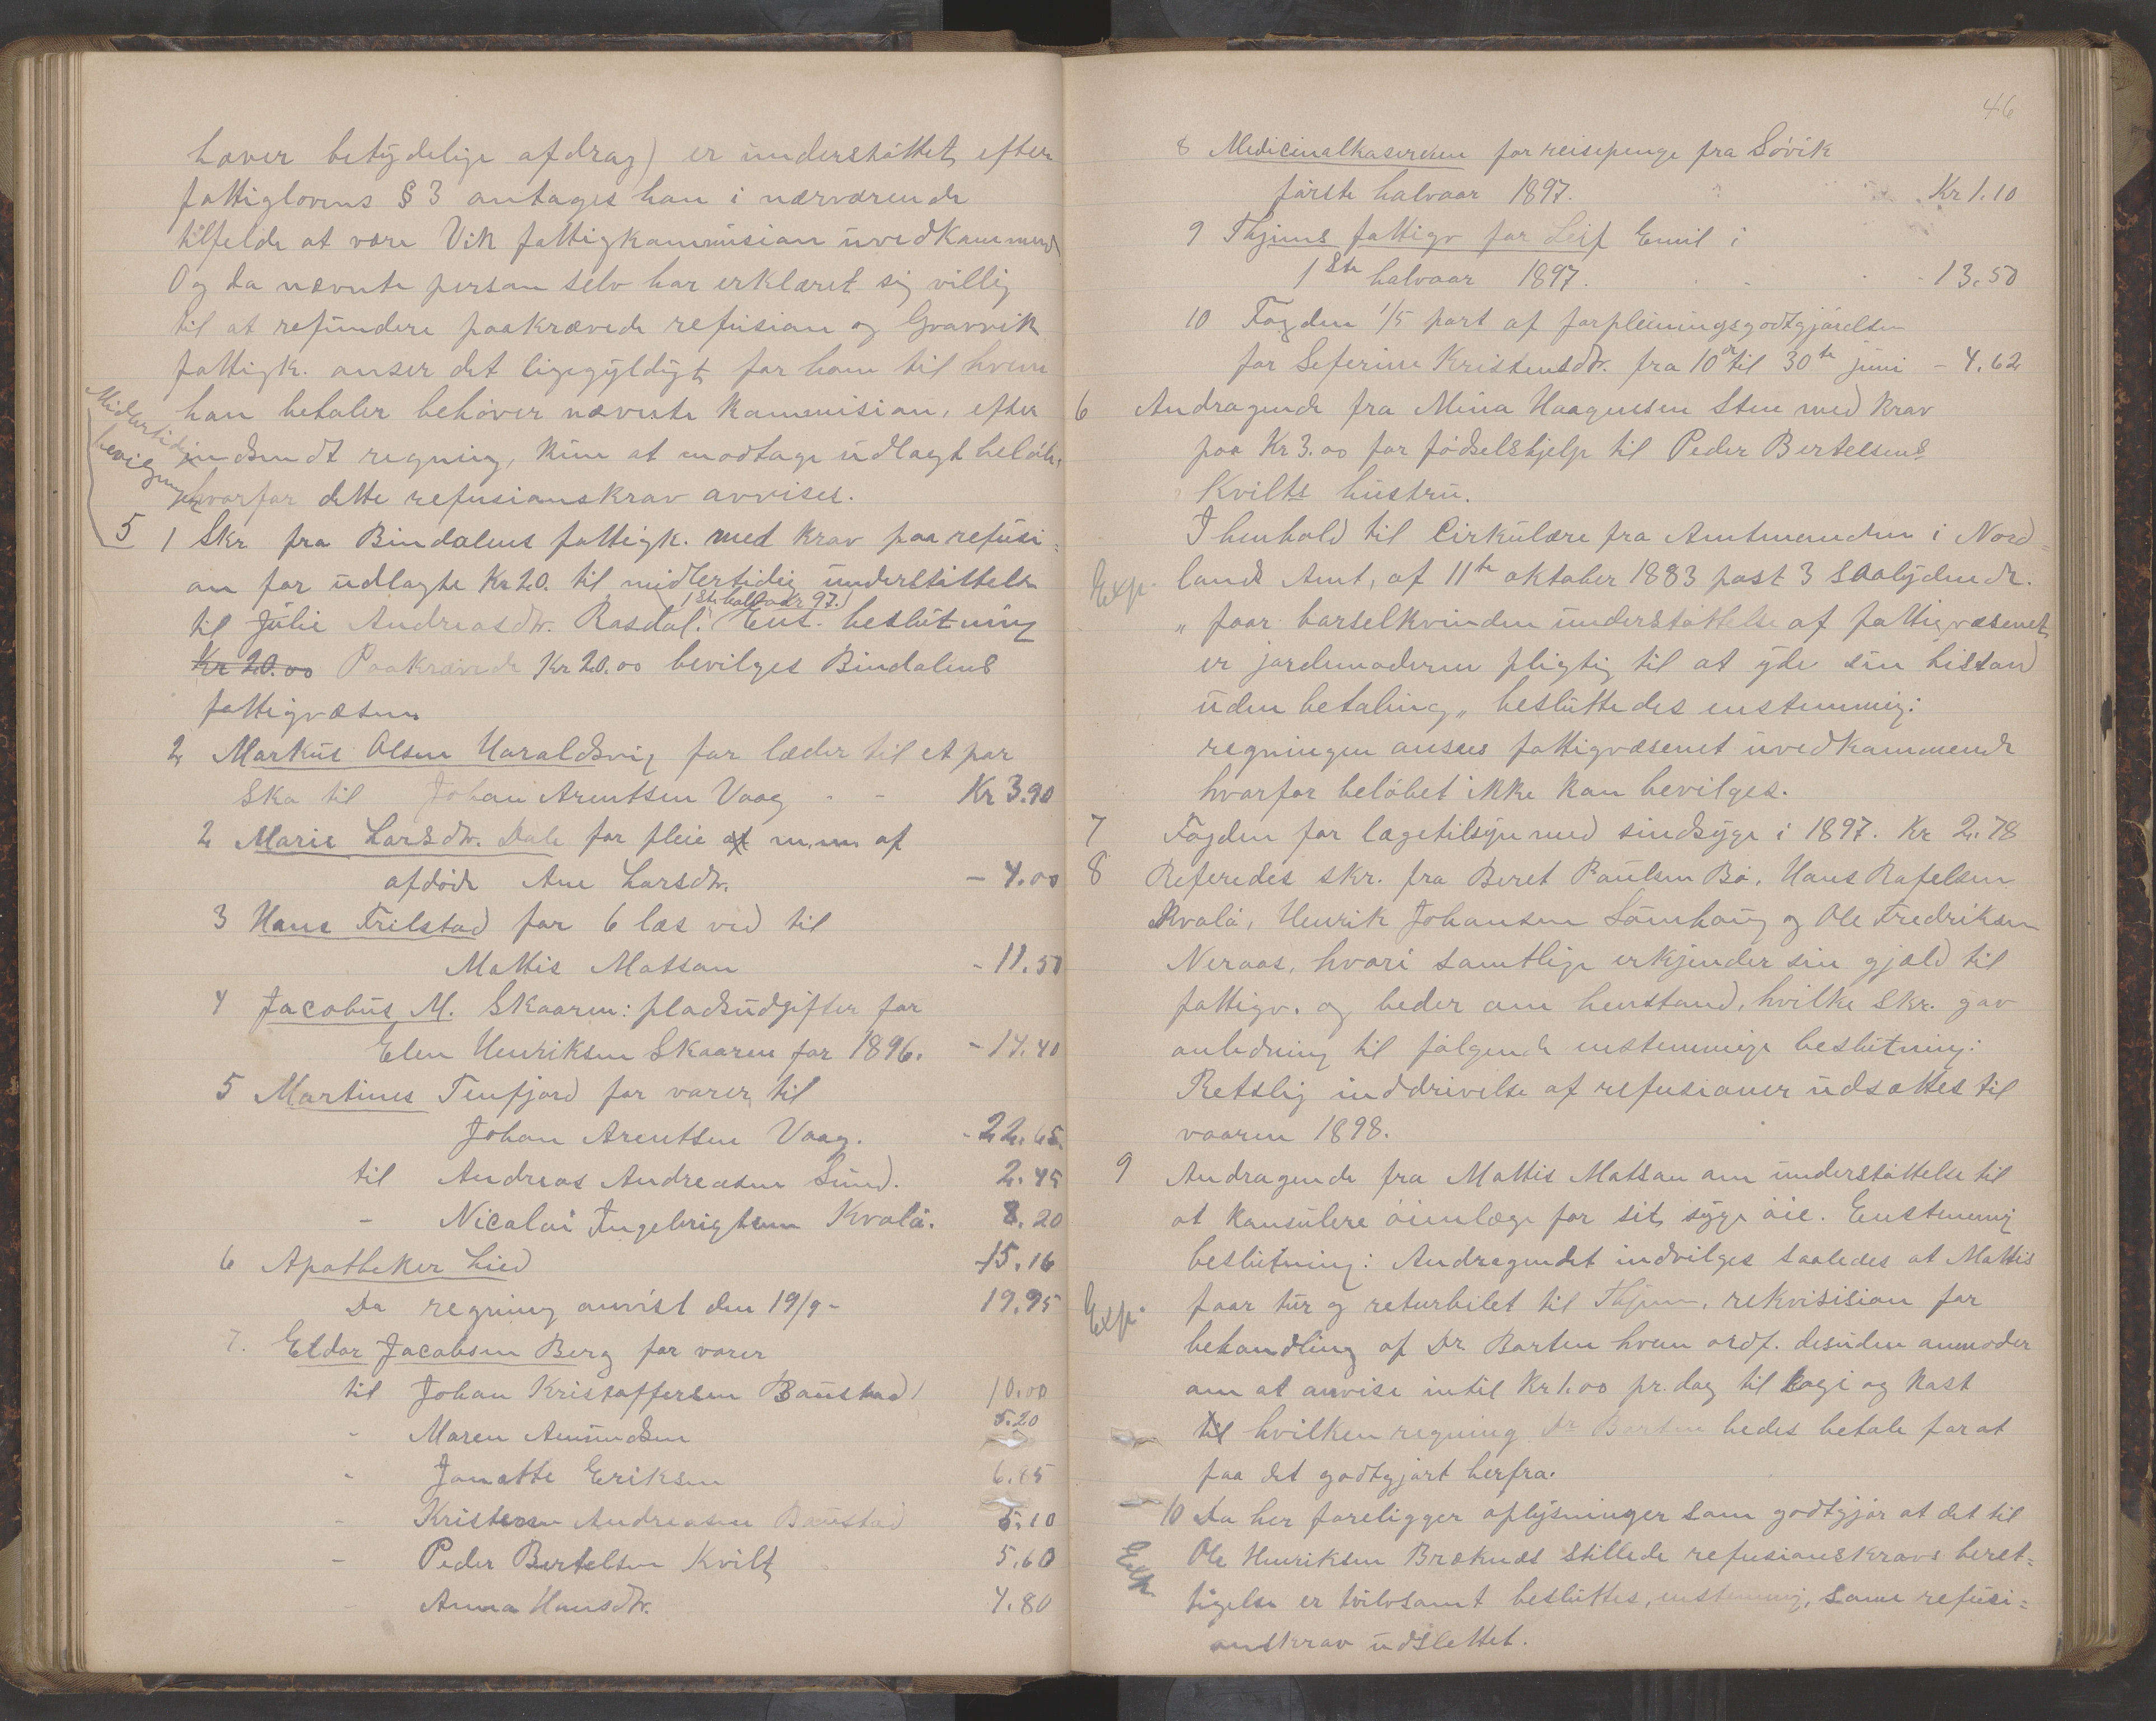 haver betydelige afdrag) er understöttet, efter
fattiglovens § 3 antages han i nærværende
tilfelde at være Vik fattigkommision uvedkommend
Og da nævnte person selv har erklæret sig villig
til at refundere paakrævede refusion og Gravvik
fattigk. anser det ligegyldigt for ham til hvem
han betaler behöver nævnte kommision, efter
indsendt regning, kun at modtage udlagt belöb,
hvorfor dette refusionskrav avvises.
Midlertidig
bevilgninger
5 1 Skr fra Bindalens fattigk. med krav paa refusi=
on for udlagte Kr 20. til midlertidig understöttelse
(1ste halvaar 97.)
til Julie Andreasdtr. Rasdal. Ens. beslutning
Kr 20.00 Paakrævede Kr 20.00 bevilges Bindalens
fattigvæsen
2 Markus Olsen Haraldsvig for læder til et par
sko til Johan Arentsen Vaag - - Kr 3.90
2 Marie Larsdtr. Dale for pleie af m.m. af
afdöde Ane Larsdtr. - 4.00
3 Hans Trilstad for 6 læs ved til
Mattis Matson - 11.50
4 Jacobus M. Skaaren: pladsudgifter for
Elen Henriksen Skaaren for 1896. - 14.40
5 Martines Tenfjord for varer til
Johan Arentsen Vaag. - 22.65
til Andreas Andreasen Sund. 2.45
- Nicolai Ingebrigtsen Kvalö. 8.20
6 Apotheker Lied - 15.16
Do regning anvist den 19/9 - 19.95
7. Eldor Jacobsen Berg for varer
til Johan Kristoffersen Baustad 10.00
- Maren Amundsen 5.20
- Jonette Eriksen 6.85
- Kristen Andreasen Baustad 5.10
- Peder Bertelsen Kvilt 5.60
- Anna Hansdtr. 4.80
46
8 Medicinalkasereren for reisepenge fra Sövik
förste halvaar 1897. Kr 1.10
9 Thjems fattigv for Leif Emil i
1ste halvaar 1897. - 13.50
10 Fogden 1/5 part af forpleiningsgodtgjörelsen
for Seferine Kristensdtr. fra 10de til 30te juni - 4.62
6 Andragende fra Mina Haagensen Sten med krav
paa Kr 3.00 for födselshjelp til Peder Bertelsens
Kvilts hustru.
I henhold til Cirkulære fra Amtmanden i Nord=
Exp. lands Amt, af 11te oktober 1883 post 3 saalydende.
„ faar barselkvinden understöttelse af fattigvæsenet
er jordemoderen pligtig til at yde sin bistand
uden betaling„ besluttedes enstemmig:
regningen ansees fattigvæsenet uvedkommende
hvorfor belöbet ikke kan bevilges.
7 Fogden for lægetilsyn med sindsyge i 1897. Kr 2.78
8 Referedes skr. fra Beret Paulsen Bö, Hans Rafelsen
Kvalö, Henrik Johansen Sömhaug og Ole Fredriksen
Neraas, hvori samtlige erkjender sin gjæld til
fattigv. og beder om henstand, hvilke skr. gav
anledning til fölgende enstemmige beslutning:
Retslig inddrivelse af refusioner udsættes til
vaaren 1898.
9 Andragende fra Mattis Matson om understöttelse til
at konsulere öienlæge for sit syge öie. Enstemmig
beslutning: Andragendet indvilges saaledes at Mattis
Exp. faar tur og returbilet til Thjem, rekvisision for
behandling af Dr. Borten hvem ordf. desuden anmoder
om at anvise intil Kr 1.00 pr. dag til logi og kost
til hvilken regning Dr Borten bedes betale for at
faa det godtgjort herfra.
10 Da her foreligger oplysninger som godtgjör at det til
Exp. Ole Henriksen Bræknes stillede refusionskravs beret=
tigelse er tvilsomt besluttes, enstemmig, same refusi=
onskrav udslettet.